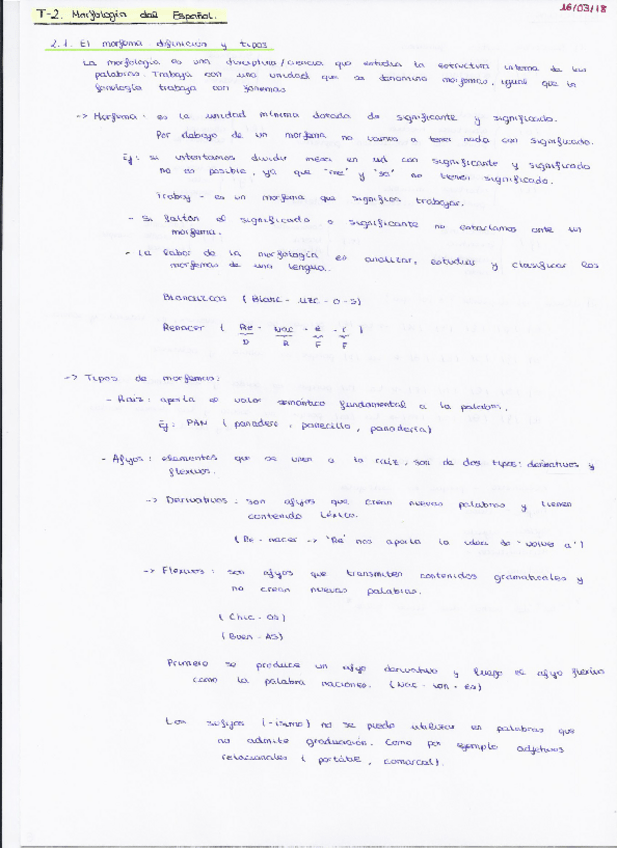 T-2. Morfología del Español.
16/03/18
2.1. El morfema definición y tipos
La morfología es una disciplina/ciencia que estudia la estructura interna de las
palabras. Trabaja con una unidad que se denomina morfemas, igual que la
fonología trabaja con fonemas
-> Morfema: es la unidad mínima dotada de significante y significado.
Por debajo de un morfema no vamos a tener nada con significado.
Ej: si intentamos dividir mesa en ud con significante y significado
no es posible, ya que "me" y "sa" no tienen significado.
Trabaj- es un morfema que significa trabajar.
- Si faltan el significado o significante no estaríamos ante un
morfema.
- La labor de la morfología es analizar, estudiar y clasificar los
morfemas de una lengua.
(Blanc - uzc - o - s)
Renacer ( Re - nac - e - r )
D R F F
-> Tipos de morfemas:
- Raíz: aporta el valor semántico fundamental a la palabra.
Ej: PAN (panadero, panecillo, panadería)
- Afijos: elementos que se unen a la raíz, son de dos tipos: derivativos y
flexivos.
-> Derivativos: son afijos que crean nuevas palabras y tienen
contenido léxico.
(Re-nacer -> 'Re' nos aporta la idea de 'volver a')
-> Flexivos: son afijos que transmiten contenidos gramaticales y
no crean nuevas palabras.
(Chic - os)
(Buen - AS)
Primero se produce un afijo derivativo y luego el afijo flexivo
como la palabra naciones. (Nac - ion - es)
Los sufijos (-ísimo) no se puede utilizar en palabras que
no admite graduación. Como por ejemplo adjetivos
relacionales ( portable, comarcal).